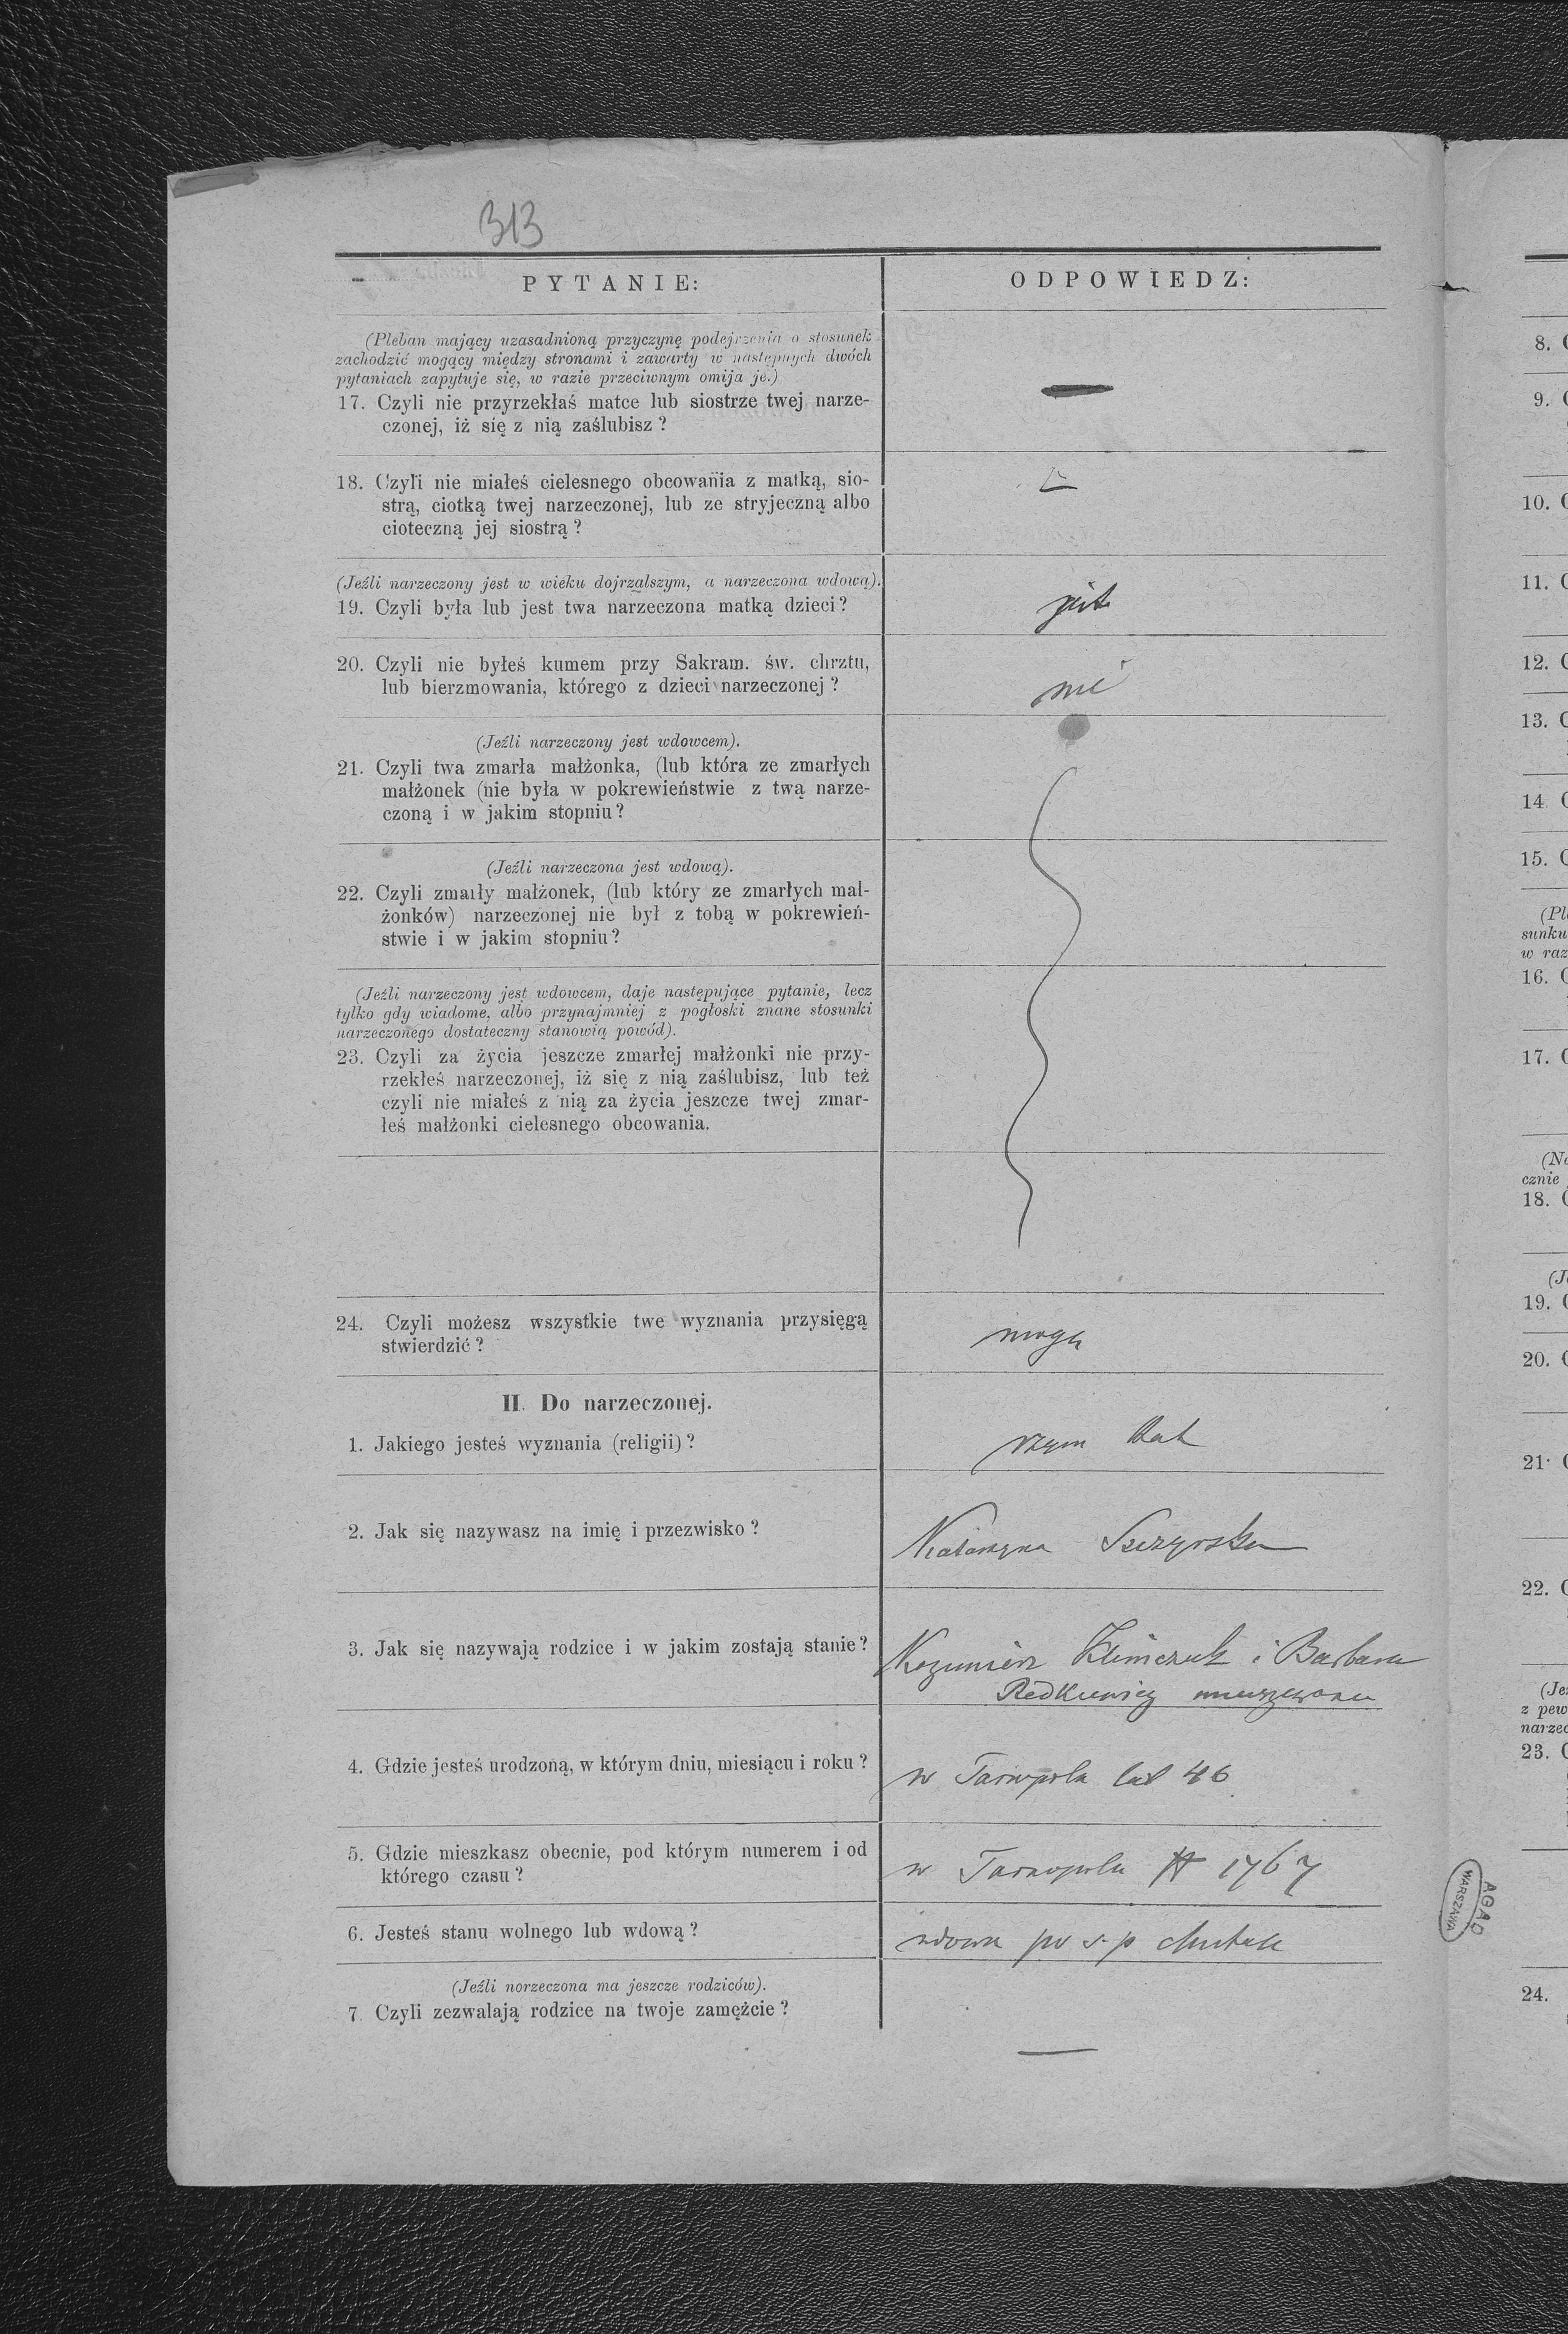 313
PYTANIE:
ODPOWIEDZ:
(Pleban mający uzasadnioną przyczynę podejrzenia o stosunek
zachodzić mogący między stronami i zawarty w następnych dwóch
pytaniach zapytuje się, w razie przeciwnym omija je.)
17. Czyli nie przyrzekłaś matce lub siostrze twej narze-
czonej, iż się z nią zaślubisz?
18. Czyli nie miałeś cielesnego obcowania z matką, sio-
strą, ciotką twej narzeczonej, lub ze stryjeczną albo
cioteczną jej siostrą?
(Jeźli narzeczony jest w wieku dojrzalszym, a narzeczona wdową).
19. Czyli była lub jest twa narzeczona matką dzieci?
jest
20. Czyli nie byłeś kumem przy Sakram. św. chrztu,
lub bierzmowania, którego z dzieci narzeczonej?
nie
(Jeźli narzeczony jest wdowcem).
21. Czyli twa zmarła małżonka, (lub która ze zmarłych
małżonek (nie była w pokrewieństwie z twą narze-
czoną i w jakim stopniu?
(Jeźli narzeczona jest wdową).
22. Czyli zmarły małżonek, (lub który ze zmarłych mał-
żonków) narzeczonej nie był z tobą w pokrewień-
stwie i w jakim stopniu?
(Jeźli narzeczony jest wdowcem, daje następujące pytanie, lecz
tylko gdy wiadome, albo przynajmniej z pogłoski znane stosunki
narzeczonego dostateczny stanowią powód).
23. Czyli za życia jeszcze zmarłej małżonki nie przy-
rzekłeś narzeczonej, iż się z nią zaślubisz, lub też
czyli nie miałeś z nią za życia jeszcze twej zmar-
łeś małżonki cielesnego obcowania.
24. Czyli możesz wszystkie twe wyznania przysięgą
stwierdzić?
mogę
II. Do narzeczonej.
1. Jakiego jesteś wyznania (religii)?
rzym kat
2. Jak się nazywasz na imię i przezwisko?
Katarzyna
3. Jak się nazywają rodzice i w jakim zostają stanie?
Kazimierz Klimczuk i Barbara
4. Gdzie jesteś urodzoną, w którym dniu, miesiącu i roku?
w Tarnopolu lat 46
5. Gdzie mieszkasz obecnie, pod którym numerem i od
którego czasu?
w Tarnopolu 1767
6. Jesteś stanu wolnego lub wdową?
wdowa po s. p
(Jeźli norzeczona ma jeszcze rodziców).
7. Czyli zezwalają rodzice na twoje zamężcie?
8.
9.
10.
11.
12.
13.
14.
15.
(Pl
sunku
w raz
16.
17.
(Na
cznie
18.
(J
19.
20.
21.
22.
(Je
z pew
narzec
23.
24.
AGAD
WARSZAWA